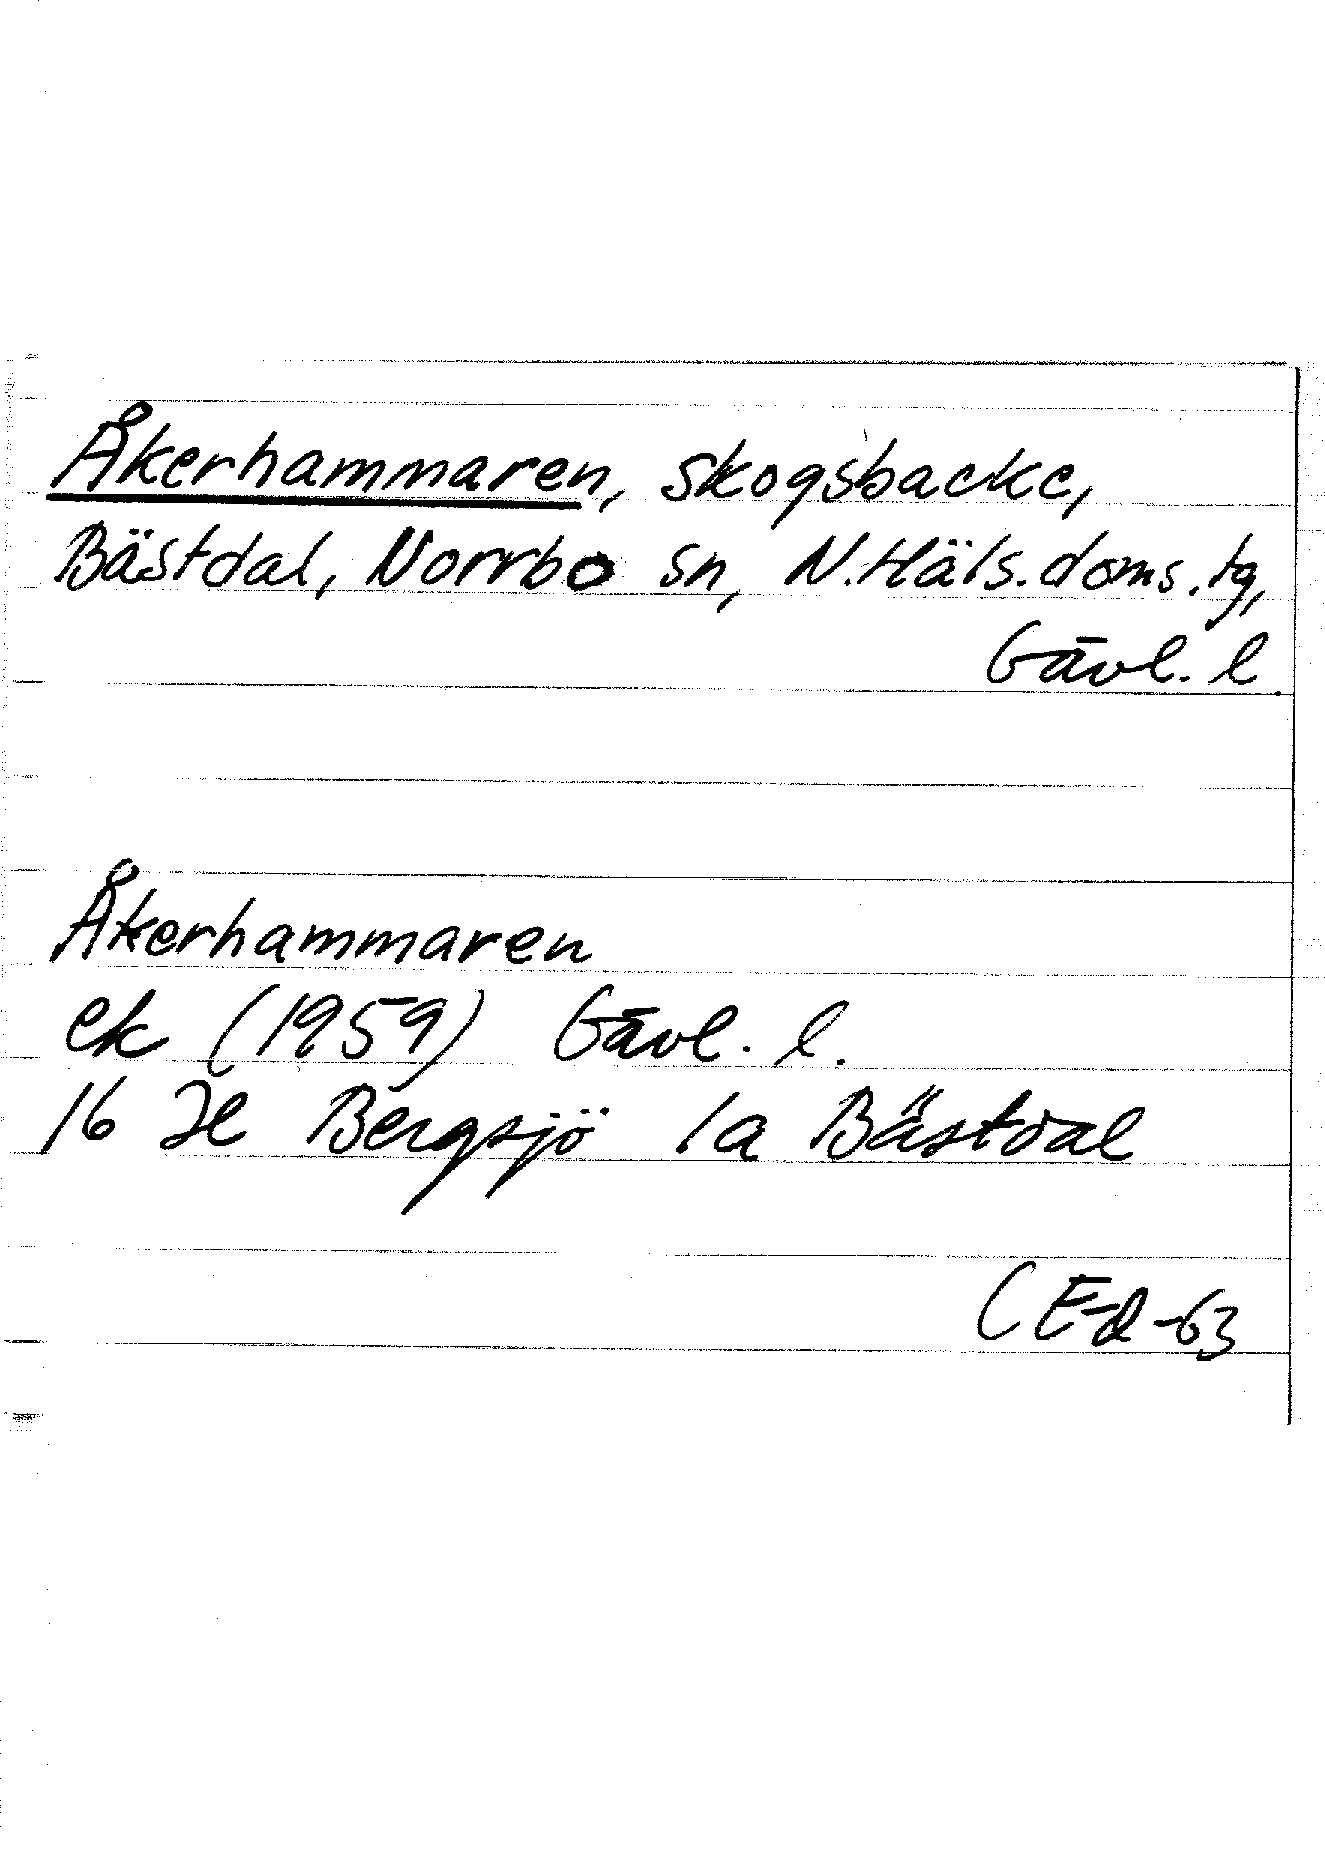 Åkerhammaren, skogsbacke,
Bästdal, Norrbo sn, N.Häls.doms.tg,
Gävl. l.
Åkerhammaren
ek (1959) Gävl. l.
16 H Bergsjö 1a Bästdal
CE-d-63